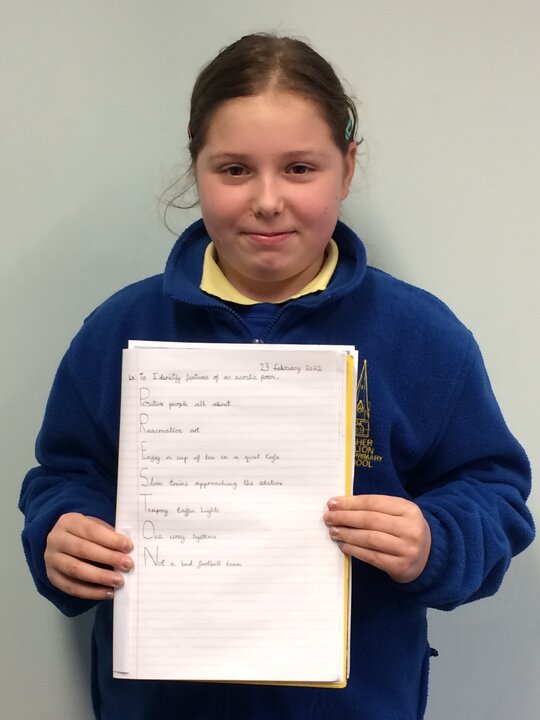 23 February 2022
LO: To Identify features of an acrostic poem.
Positive people all about
Recreation art
Enjoy a cup of tea in a quiet Cafe
Slow trains approaching the station
Tempory traffic Lights
One way systems
Not a bad football team
PRIMARY
SCHOOL